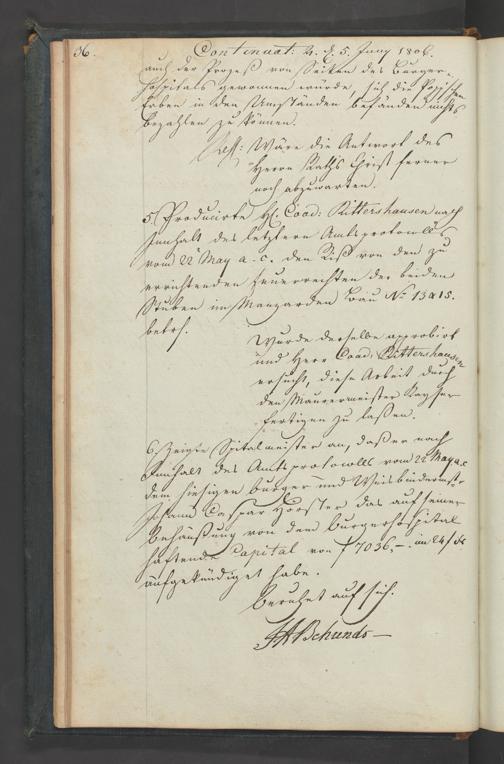 36. Continuat: 4. d. 5. Juny 1806.
auch der Prozeß von Seiten des Bürger-
hospitals gewonnen würde, sich die
Erben in den Umständen befänden nichts
bezahlen zu können.
Wäre die Antwort des
Herrn Raths Christ ferner
noch abzuwarten.
5.) Producirte H. Coad: Rittershausen nach
Innhalt des letztern Amtsprotocolls
vom 22 May a. c. den Riß von den zu
errichtenden Feuerrechten der beiden
Stuben im Manzarden Bau No 13 a 15.
betrf.
Wurde derselbe approbirt
und Herr Coad: Rittershausen
ersucht, diese Arbeit durch
den Maurermeister Kayser
fertigen zu laßen.
6. Zeigte Spitalmeister an, daß er nach
Innhalt des Amtsprotocolls vom 22 May a. c
dem hiesigen Bürger und Weisbindermstr
Johann Caspar das auf seiner
Behaußung von dem Bürgerhospital
haftende Capital von f 7036,– im 24 f
aufgekündiget habe.
Beruhet auf sich.